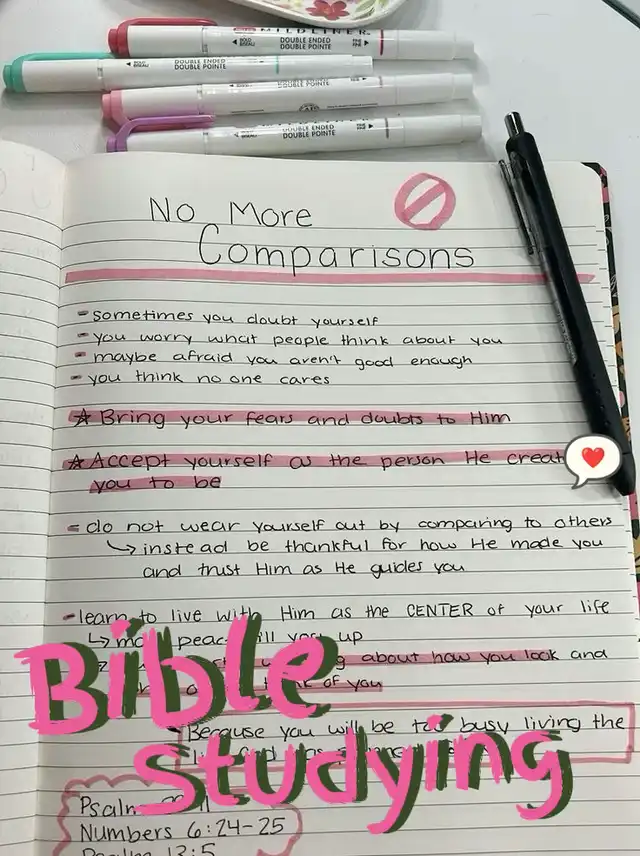 MILDLINER
DOUBLE ENDED
DOUBLE POINTE
DOUBLE ENDED
DOUBLE POINTE
DOUBLE ENDED
DOUBLE POINTE
DOUBLE ENDED
DOUBLE POINTE
No More
Comparisons
- sometimes you doubt yourself
- you worry what people think about you
- maybe afraid you aren't good enough
- you think no one cares
☆ Bring your fears and doubts to Him
☆ Accept yourself as the person He creat
you to be
- do not wear yourself out by comparing to others
↳ instead be thankful for how He made you
and trust Him as He guides you
- learn to live with Him as the CENTER of your life
↳ peac you up
about how you look and
of you
Because you will be too busy living the
Bible
Studying
Psalm
Numbers 6:24-25
Psalm 13:5